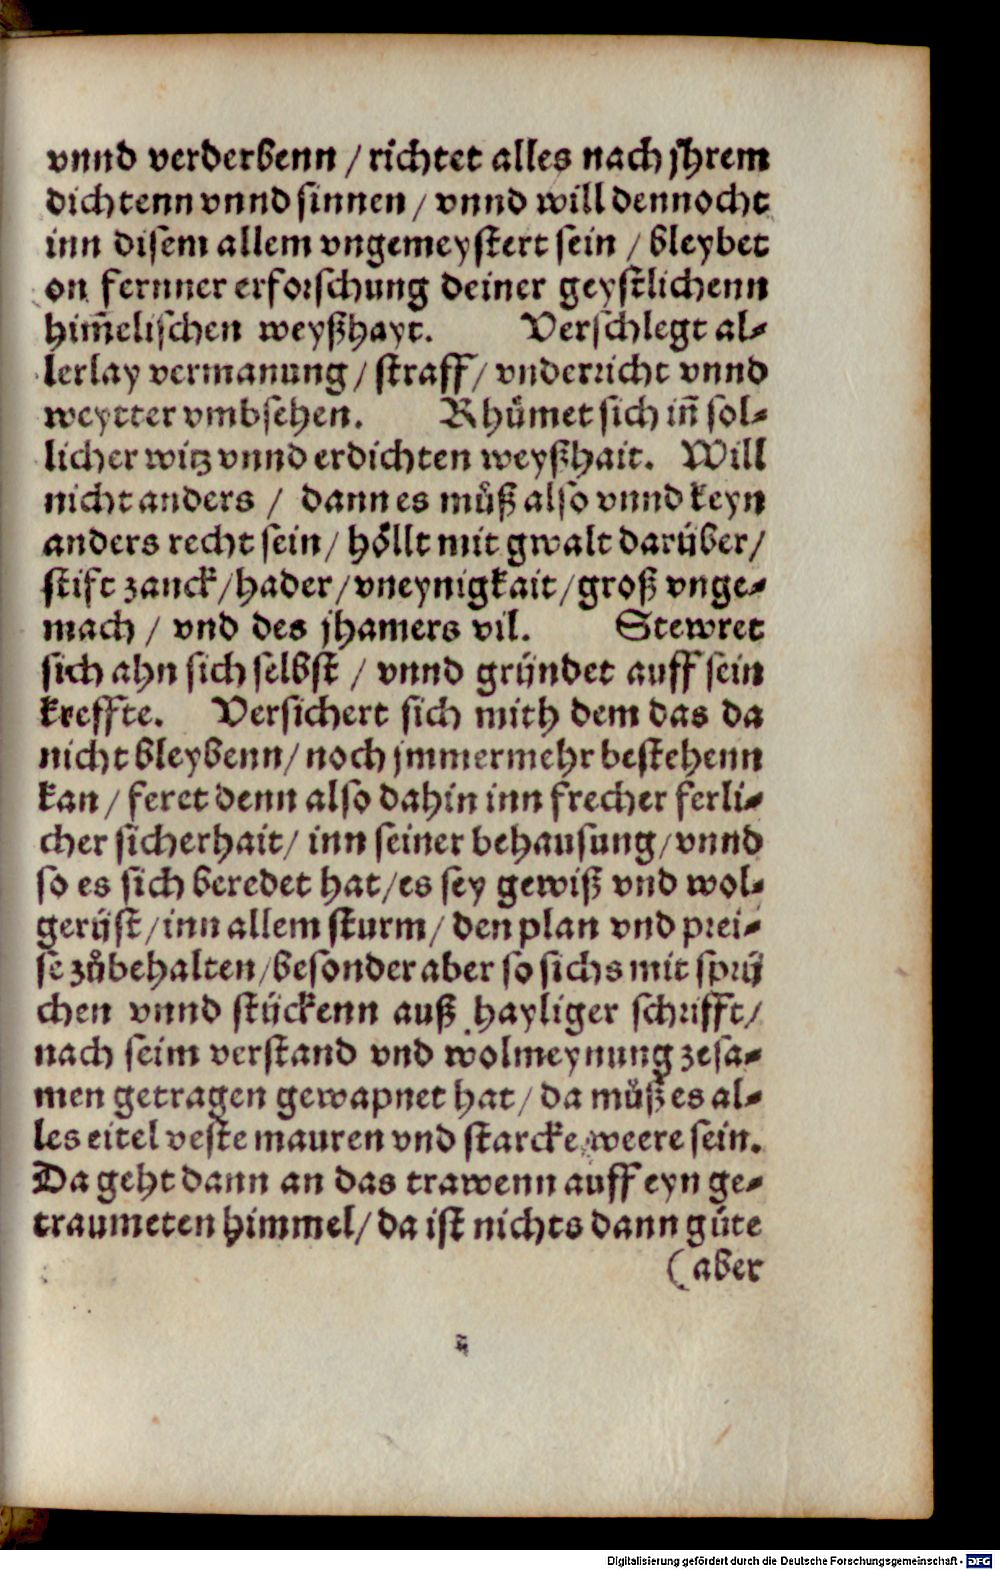 vnnd verderbenn / richtet alles nach jhrem
dichtenn vnnd sinnen / vnnd will dennocht
inn disem allem vngemeystert sein / bleybet
on fernner erforschung deiner geystlichenn
him̅elischen weyßhayt. Verschlegt al⸗
lerlay vermanung / straff / vnderricht vnnd
weytter vmbsehen. Rhuͤmet sich in̅ sol⸗
licher witz vnnd erdichten weyßhait. Will
nicht anders / dann es muͤß also vnnd keyn
anders recht sein / hoͤllt mit gwalt daruͤber /
stift zanck / hader / vneynigkait / groß vnge⸗
mach / vnd des jhamers vil. Stewret
sich ahn sich selbst / vnnd gruͤndet auff sein
kreffte. Versichert sich mith dem das da
nicht bleybenn / noch jmmermehr bestehenn
kan / feret denn also dahin inn frecher ferli⸗
cher sicherhait / inn seiner behausung / vnnd
so es sich beredet hat / es sey gewiß vnd wol⸗
geruͤst / inn allem sturm / den plan vnd prei⸗
se zuͦbehalten / besonder aber so sichs mit spruͤ
chen vnnd stuͤckenn auß hayliger schrifft /
nach seim verstand vnd wolmeynung zesa⸗
men getragen gewapnet hat / da muͤß es al⸗
les eitel veste mauren vnd starcke weere sein.
Da geht dann an das trawenn auff eyn ge⸗
traumeten himmel / da ist nichts dann guͤte
(aber
Digitalisierung gefördert durch die Deutsche Forschungsgemeinschaft - DFG